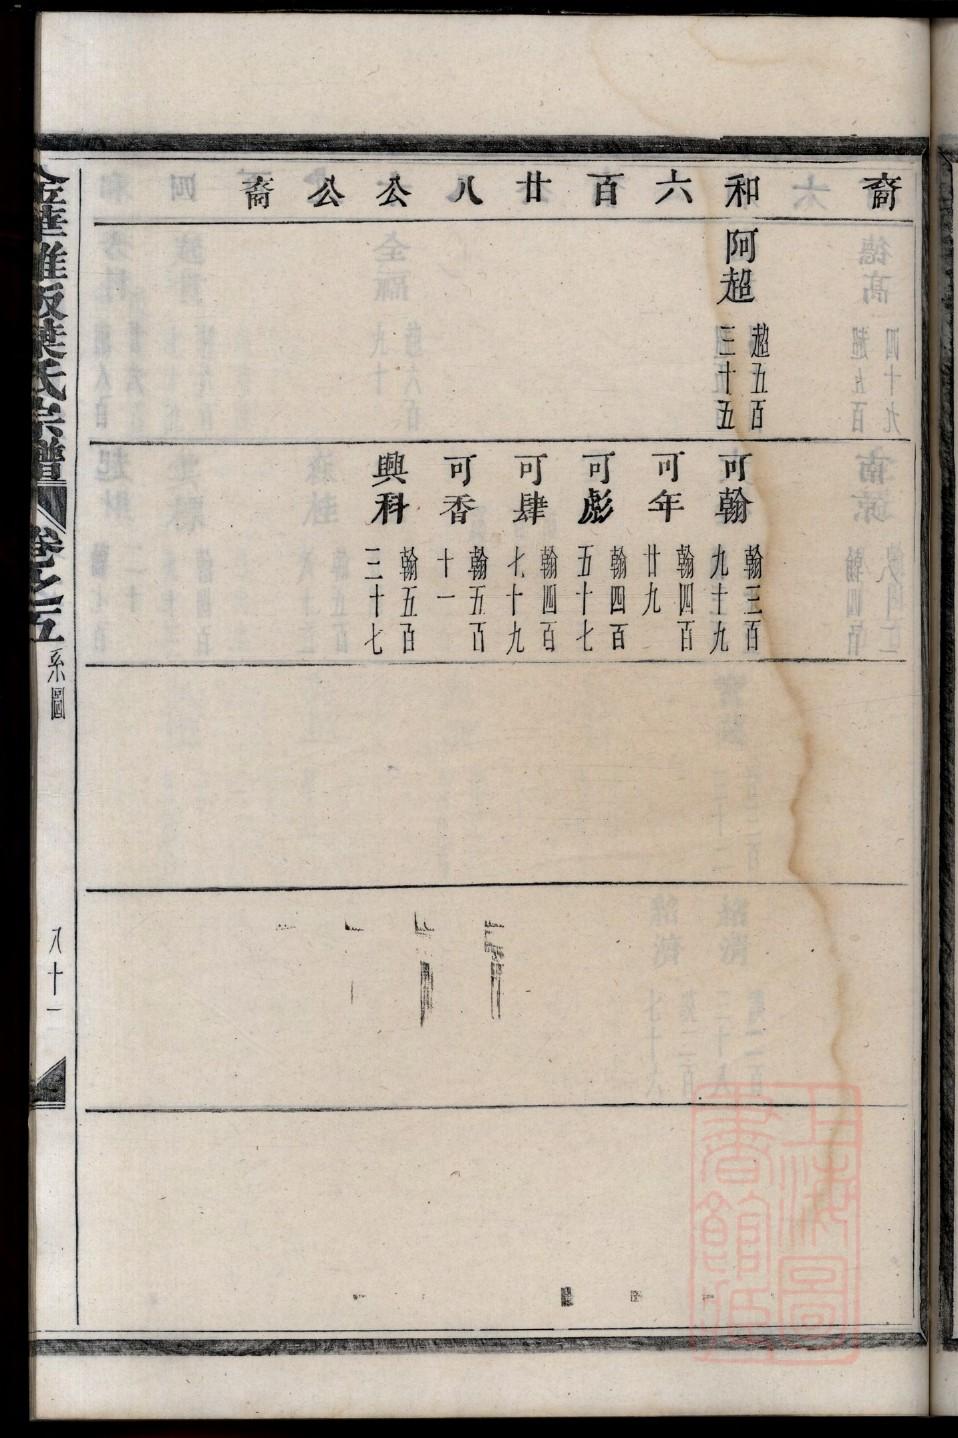 裔　和六百廿八公公裔
阿超
超五百
三十五
可翰
翰三百
九十九
可年
翰四百
廿九
可彪
翰四百
五十七
可肆
翰四百
七十九
可香
翰五百
十一
興科
翰五百
三十七
金華雅畈葉氏宗譜
卷之五
系圖
八十一
上海圖
書館藏